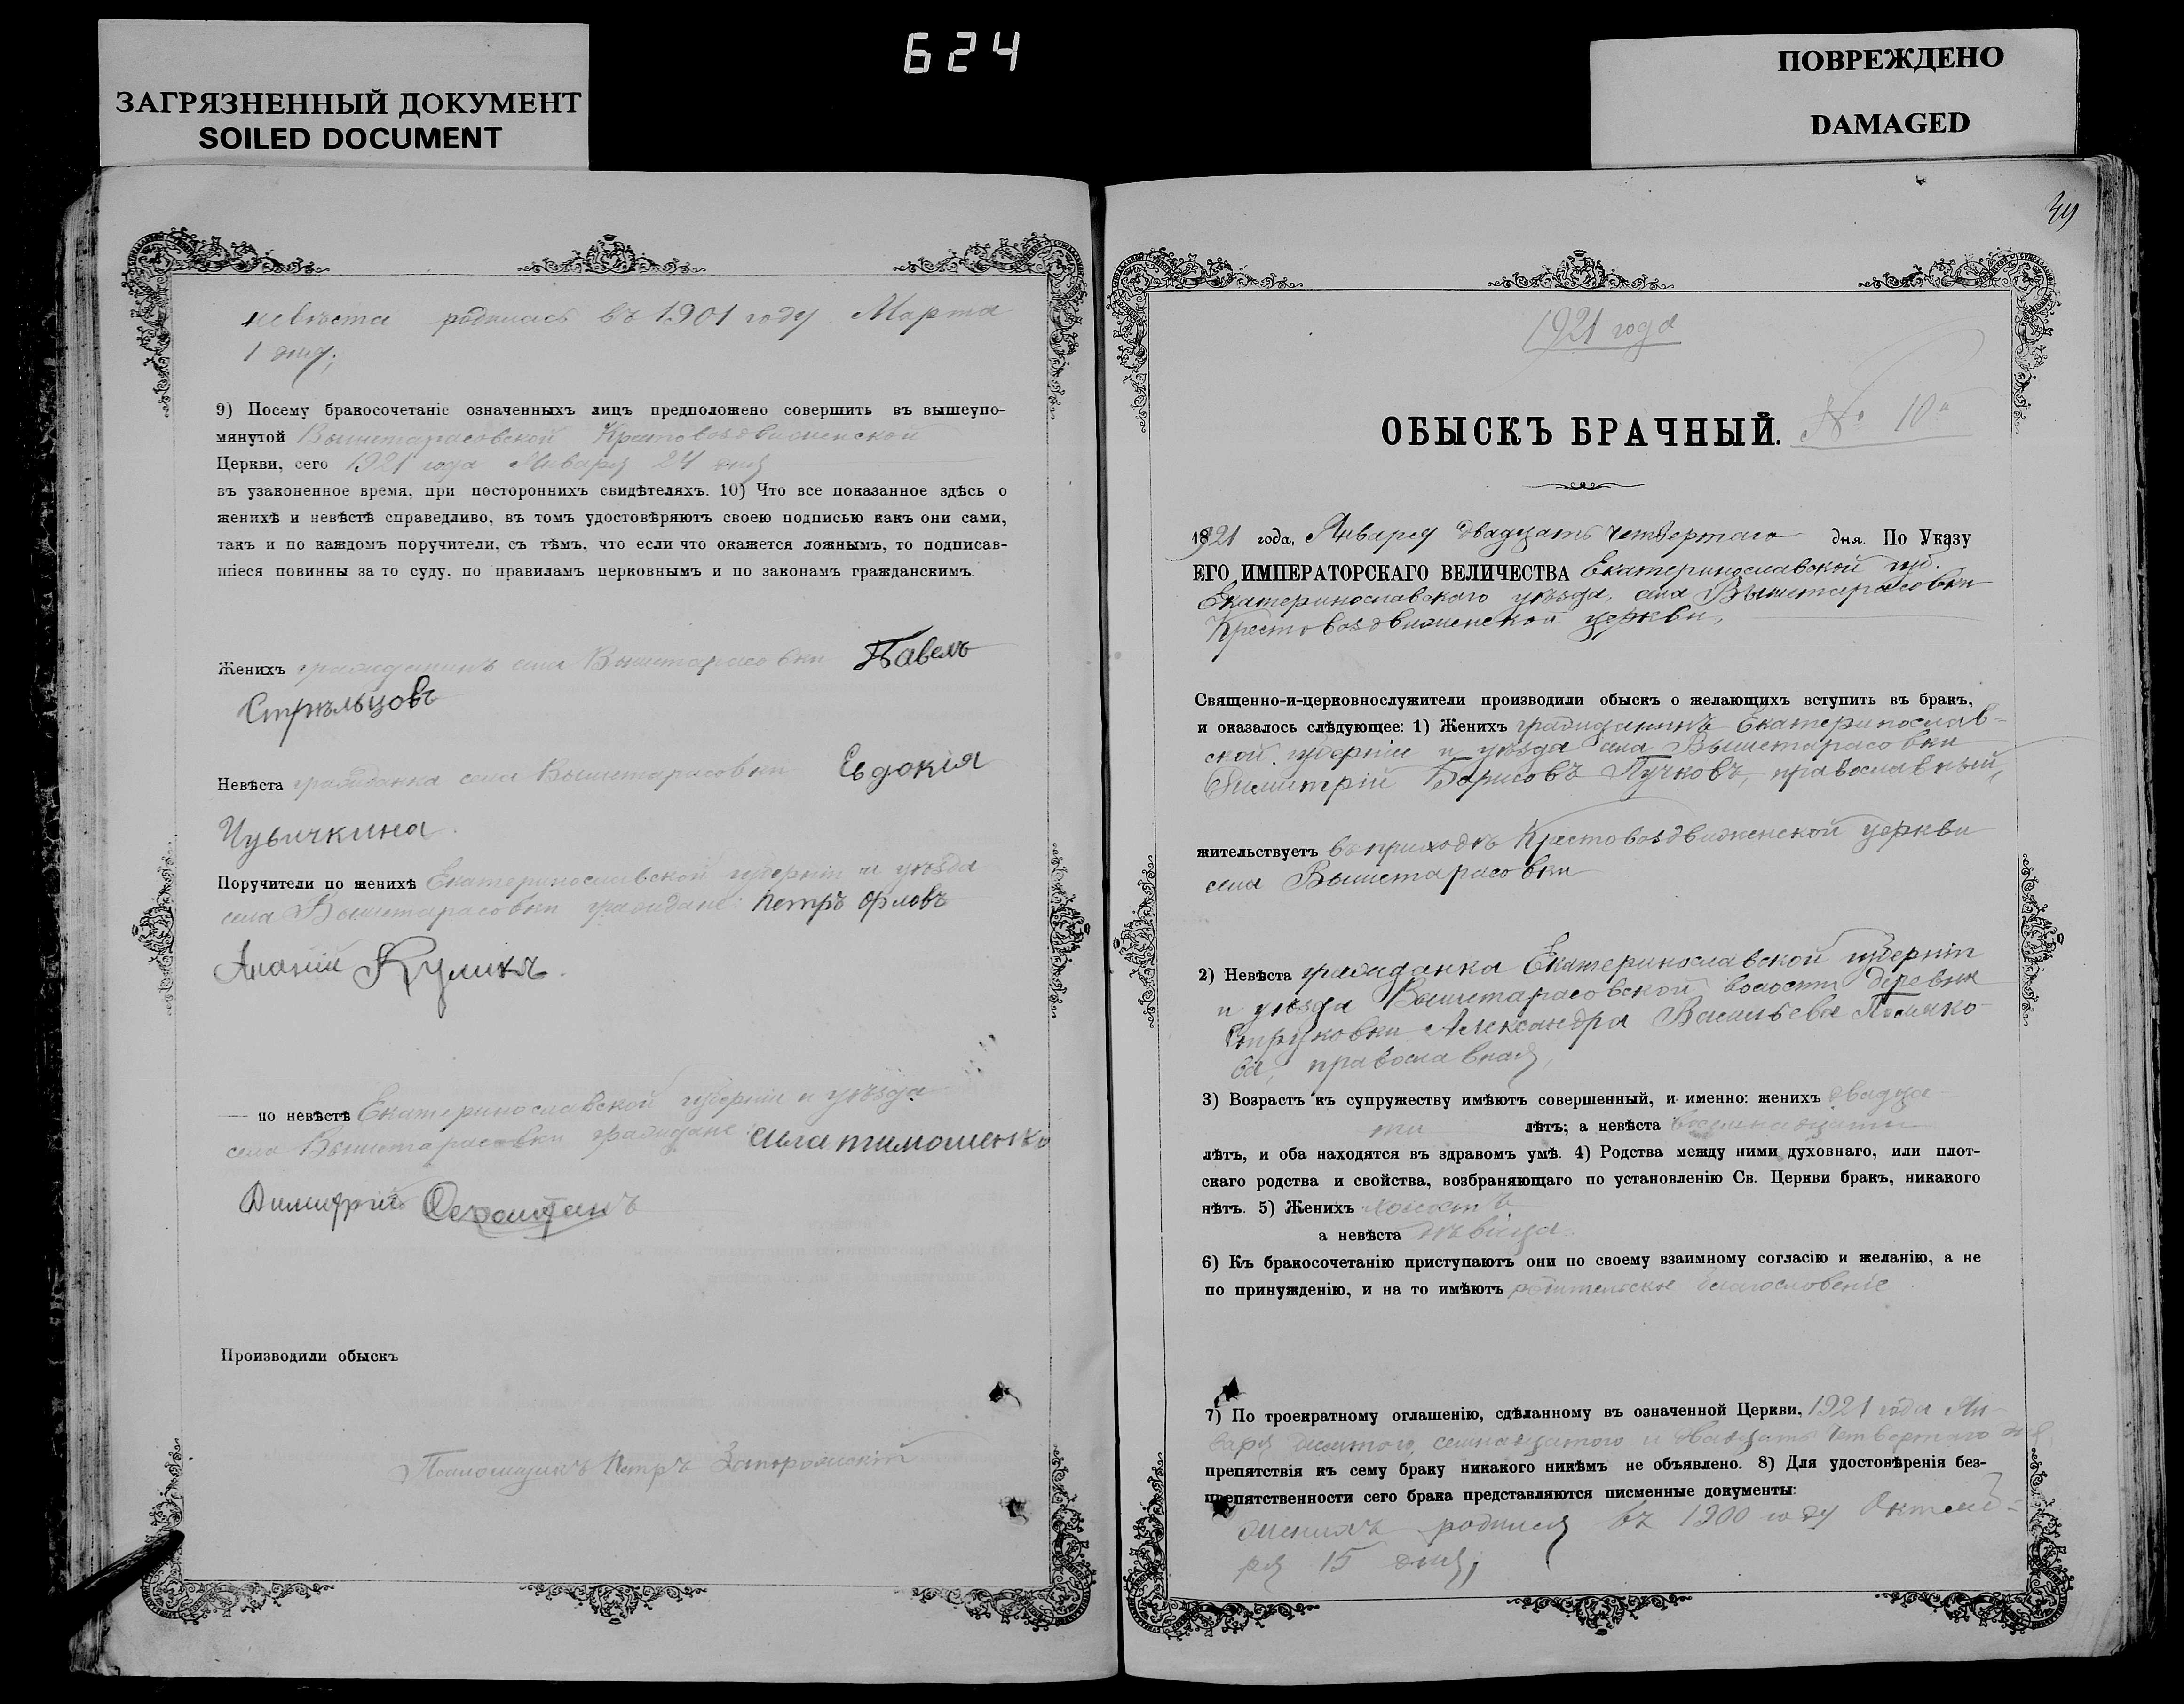 624
ЗАГРЯЗНЕННЫЙ ДОКУМЕНТ
SOILED DOCUMENT
ПОВРЕЖДЕНО
DAMAGED
невѣста родилась въ 1901 году Марта
1 дня;
9) Посему бракосочетаніе означенныхъ лицъ предположено совершить въ вышеупо-
мянутой Вышетарасовской Крестовоздвиженской
Церкви, сего 1921 года Января 24 дня
въ узаконенное время, при постороннихъ свидѣтеляхъ. 10) Что все показанное здѣсь о
женихѣ и невѣстѣ справедливо, въ томъ удостовѣряютъ своею подписью какъ они сами,
такъ и по каждомъ поручители, съ тѣмъ, что если что окажется ложнымъ, то подписав-
шіеся повинны за то суду, по правиламъ церковнымъ и по законамъ гражданскимъ.
Женихъ гражданинъ села Вышетарасовки Павелъ
Стрѣльцовъ
Невѣста гражданка села Вышетарасовки Евдокія
Чувичкина
Поручители по женихѣ Екатеринославской губерніи и уѣзда
села Вышетарасовки граждане: Петръ Орловъ
Ананій Куликъ.
по невѣстѣ Екатеринославской губерніи и уѣзда
села Вышетарасовки граждане: Илатимошенко
Димитрій
Производили обыскъ
Псаломщикъ Петръ Запорожскій
1921 года
ОБЫСКЪ БРАЧНЫЙ. № 10й
1921 года, Января двадцать четвертаго дня. По Указу
ЕГО ИМПЕРАТОРСКАГО ВЕЛИЧЕСТВА Екатеринославской губ.
Екатеринославскаго уѣзда, села Вышетарасовки
Крестовоздвиженской церкви,
Священно-и-церковнослужители производили обыскъ о желающихъ вступить въ бракъ,
и оказалось слѣдующее: 1) Женихъ гражданинъ Екатеринослав-
ской губерніи и уѣзда села Вышетарасовки
Димитрій Борисовъ Пучковъ, православный,
жительствуетъ въ приходѣ Крестовоздвиженской церкви
села Вышетарасовки
2) Невѣста гражданка Екатеринославской губерніи
и уѣзда Вышетарасовской волости деревни
Струковки Александра Васильева Поляко-
ва, православная,
3) Возрастъ къ супружеству имѣютъ совершенный, и именно: женихъ двадца-
ти лѣтъ; а невѣста восемнадцати
лѣтъ, и оба находятся въ здравомъ умѣ. 4) Родства между ними духовнаго, или плот-
скаго родства и свойства, возбраняющаго по установленію Св. Церкви бракъ, никакого
нѣтъ. 5) Женихъ холостъ
а невѣста дѣвица.
6) Къ бракосочетанію приступаютъ они по своему взаимному согласію и желанію, а не
по принужденію, и на то имѣютъ родительское благословеніе
7) По троекратному оглашенію, сдѣланному въ означенной Церкви, 1921 года Ян-
варя десятого, семнадцатого и двадцать четвертаго дня,
препятствія къ сему браку никакого никѣмъ не объявлено. 8) Для удостовѣренія без-
препятственности сего брака представляются писменные документы:
женихъ родился въ 1900 году Октяб-
ря 15 дня;